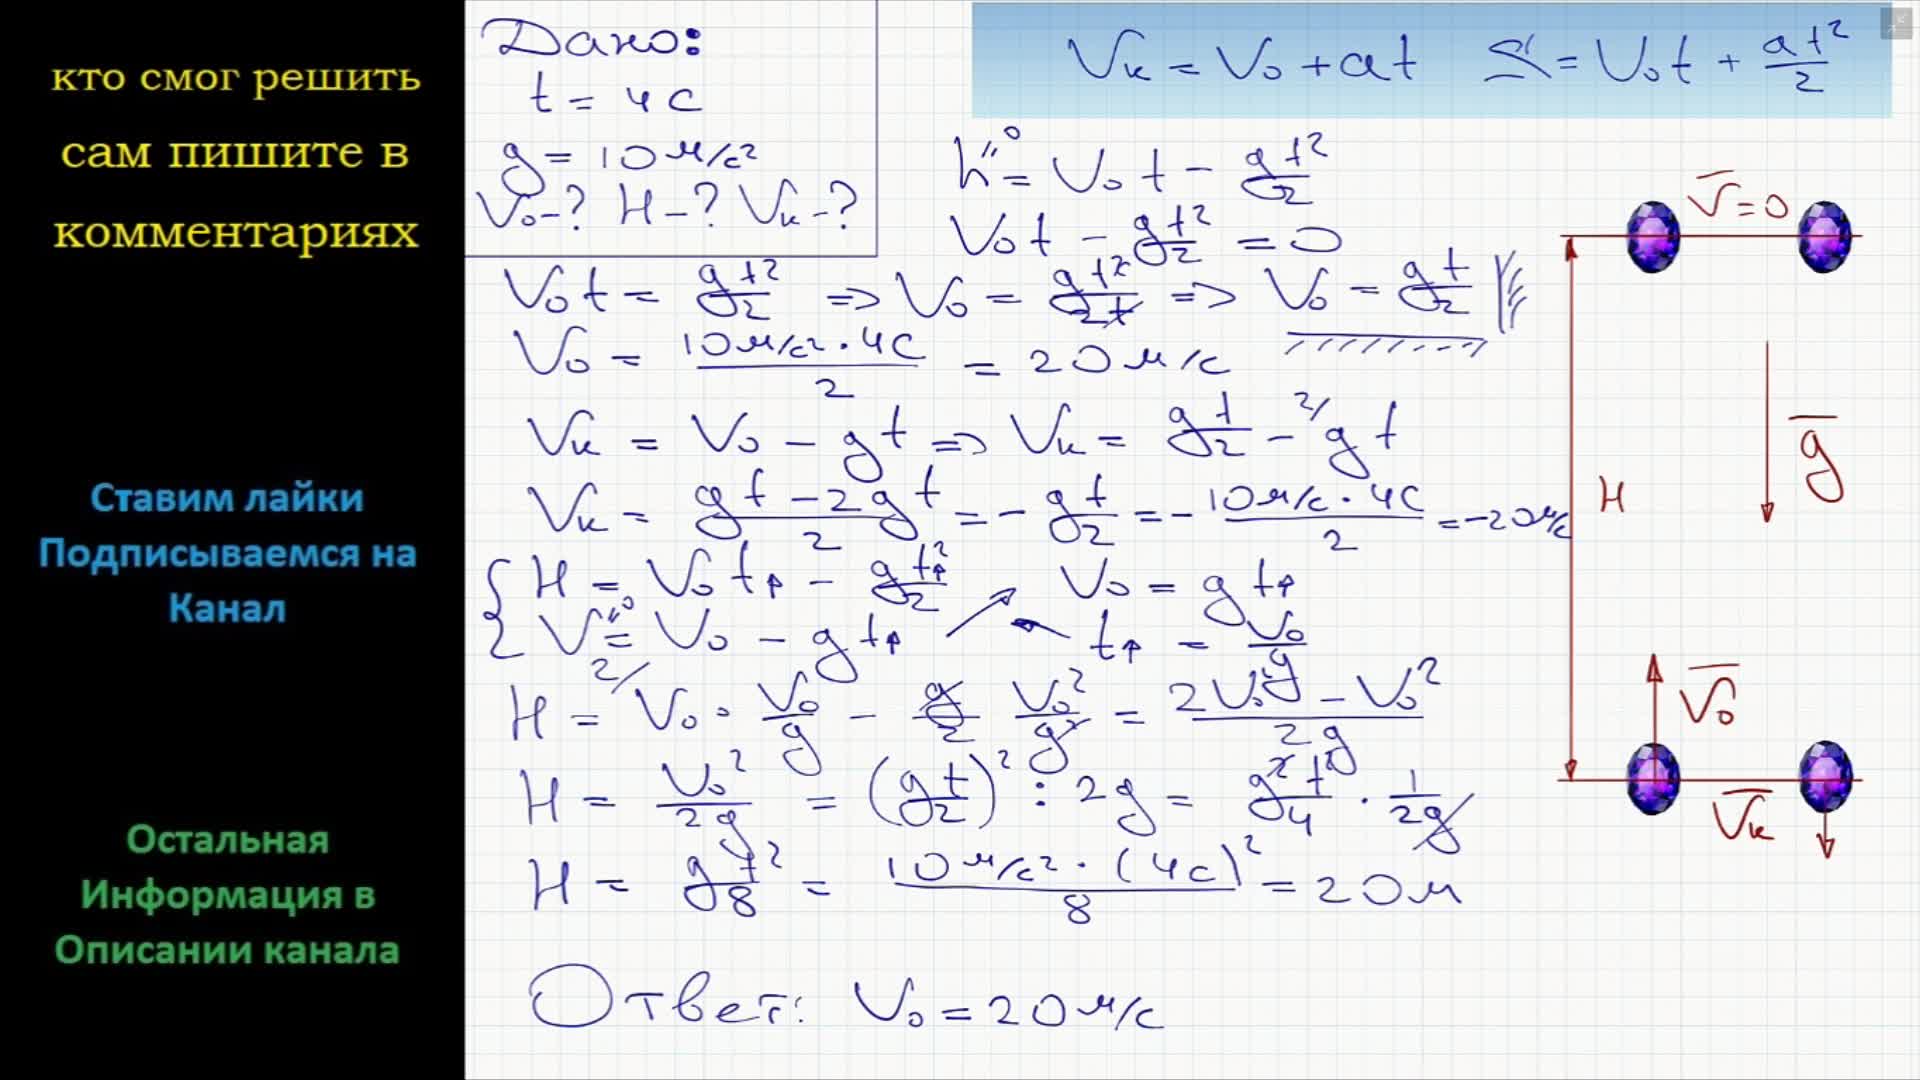 кто смог решить
сам пишите в
комментариях
Ставим лайки
Подписываемся на
Канал
Остальная
Информация в
Описании канала
Дано:
t = 4 с
g = 10 м/с²
V₀ - ? H - ? Vк - ?
Vк = V₀ + at S = V₀t + at²/2
h = V₀t - gt²/2
V₀t - gt²/2 = 0
V₀t = gt²/2 => V₀ = gt²/2t => V₀ = gt/2
V₀ = 10 м/с² · 4 с/2 = 20 м/с
Vк = V₀ - gt => Vк = gt/2 - gt
Vк = gt - 2gt/2 = - gt/2 = - 10 м/с · 4 с/2 = -20 м/с
H = V₀t↑ - gt↑²/2 V₀ = gt↑
V = V₀ - gt↑ t↑ = V₀/g
H = V₀ · V₀/g - g/2 V₀²/g² = 2V₀² - V₀²/2g
H = V₀²/2g = (gt/2)² : 2g = g²t²/4 · 1/2g
H = gt²/8 = 10 м/с² · (4 с)²/8 = 20 м
Ответ: V₀ = 20 м/с
V = 0
g
H
V₀
Vк